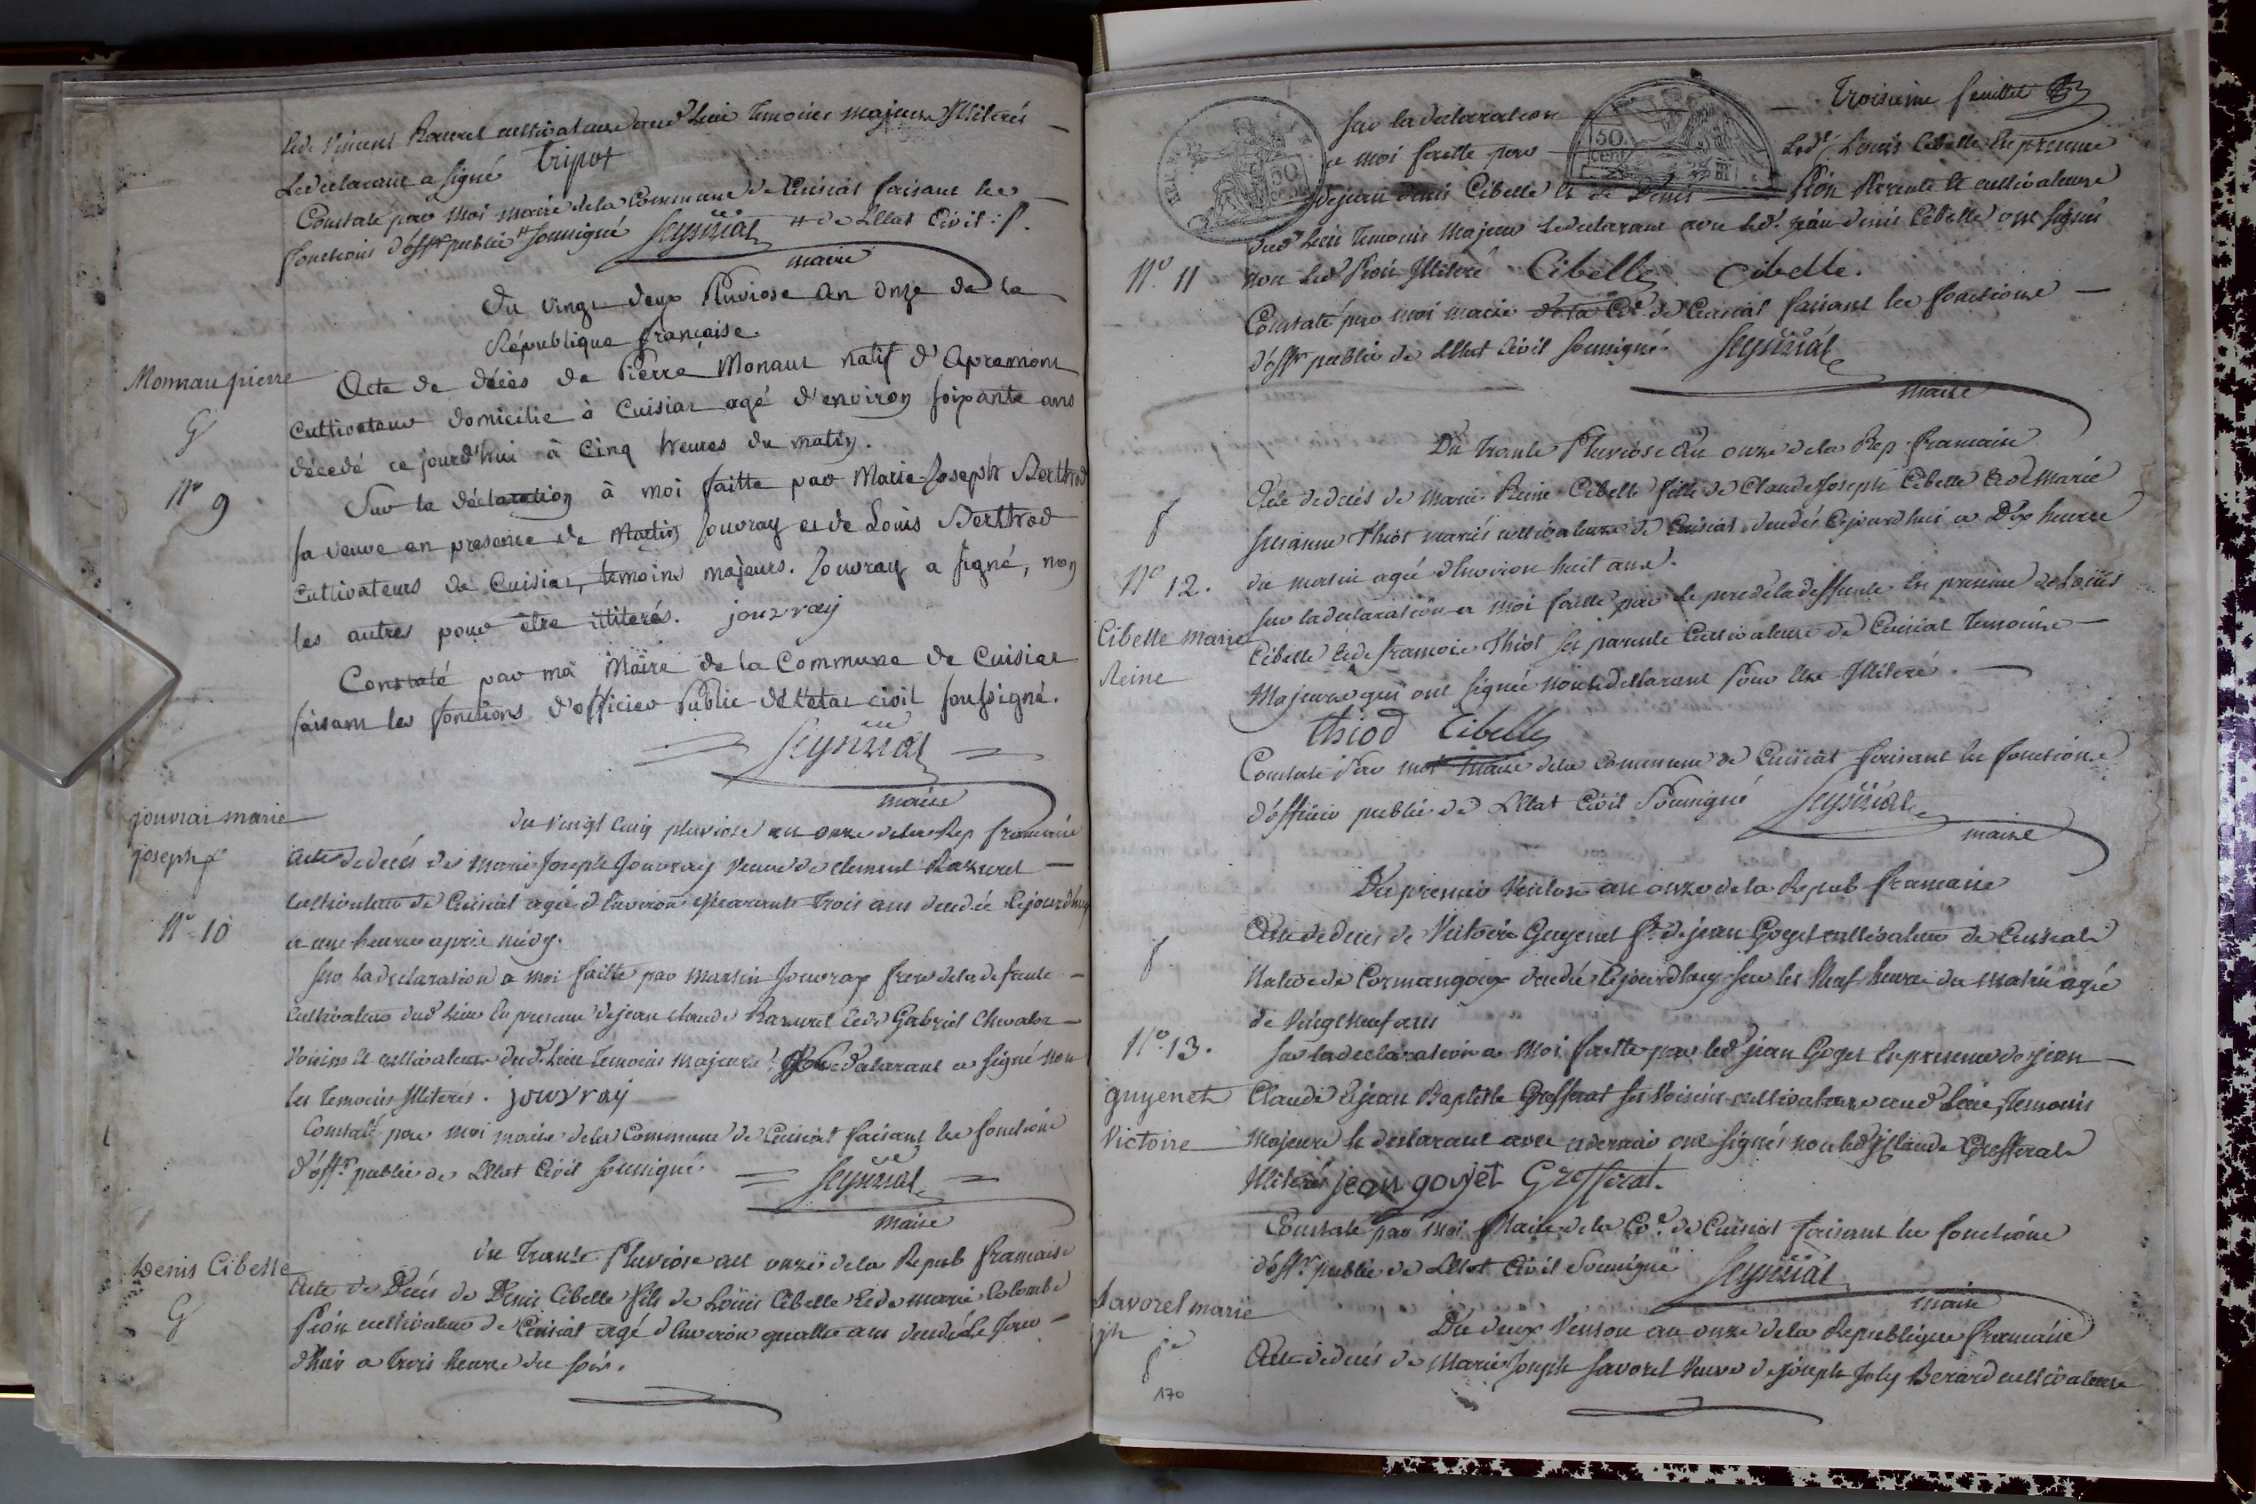 Vincent Razurel cultivateurs dud. Lieu temoins majeurs Illiterés
Le declarant a signé Tripot
Constaté par moi maire de la Commune de Cuisiat faisant les
fonctions d'offr public # soussigné # de L'Etat Civil
maire
Du vingt deux Pluviose an onze de la
République française.
Monnau pierre
Acte de décès de Pierre Monaut natif d'Apremont
G
cultivateur domicilié à Cuisiat agé d'environ soixante ans
décedé ce jourd'hui à Cinq heures du matin.
N° 9
Sur la déclaration à moi faitte par Marie Joseph Berthod
sa veuve en presence de Martin Jouvray et de Louis Berthod
Cultivateurs de Cuisiat, temoins majeurs. Jouvray a signé, non
les autres pour être illiterés. jouvray
Constaté par moi Maire de la Commune de Cuisiat
faisant les fonctions d'officier Public de l'état civil soussigné.
maire
jouvrai marie
joseph
du vingt cinq pluviose an onze de la Rep francaise
acte de decés de Marie Joseph Jouvray veuve de clement Razurel
cultivateur de Cuisiat agée d'Environ quarante trois ans decedée cejourd'huy
N° 10
a une heure après midy.
Sur la declaration a moi faitte par Martin Jouvray frere de la defunte
cultivateur dud. Lieu En presence de jean claude Razurel et de Gabriel
voisins et cultivateurs dud. Lieu temoins majeurs declarant a signé non
les temoins Illiterés. jouvray
Constaté par moi maire de la Commune de Cuisiat faisant les fonctions
d'offr. public de L'Etat Civil soussigné.
maire
Du trante Pluviose an onze de la Repub francaise
Denis Cibelle
acte de Décés de Denis Cibelle fils de Louis Cibelle et de marie Colombe
G
Pion cultivateur de Cuisiat agé d'Environ quattre ans decedé Le jour
d'hui a trois heure du soir.
Troisieme feuillet
Sur la declaration
a moi faitte par Led. Louis Cibelle En presence
de jean denis Cibelle et de Denis Pion Parents et cultivateurs
dud. Lieu temoins Majeurs Le declarant avec Led. jean denis Cibelle ont signés
N°. 11
non Led Pion Illiteré Cibelle Cibelle.
Constaté par moi maire de la Cne de Cuisiat faisant les fonctions
d'offr public de L'Etat Civil soussigné.
maire
Du trante Pluviose an onze de la Rep francaise
Acte de decés de Marie Reine Cibelle fille de Claude Joseph Cibelle Et de Marie
f
Susanne Thiot mariés cultivateurs de Cuisiat decedés cejourdhui a Dix heures
N° 12.
du matin agée d'Environ huit ans.
Cibelle marie
Reine
Sur la declaration a moi faitte par le pere de la deffunte En presence de Louis
Cibelle et de francois Thiot ses parents Cultivateurs de Cuisiat temoins
Majeurs qui ont signés non le declarant Pour Etre Illiteré.
thiod Cibelle
Constaté Par moi Maire de la Commune de Cuisiat faisant les fonctions
d'officier public de L'Etat Civil Soussigné
maire
Du premier Ventose an onze de la Repub francaise
Acte de decés de Victoire Guyenet fe. de jean Goyet cultivateur de Cuisiat
f
Native de Cormangoux decedée cejourdhuy sur les Neuf heure du Matin agée
de vingt neuf ans
N° 13.
Sur la declaration a Moi faitte par led jean Goyet En presence de jean
guyenet
Claude Et jean Baptiste Grefferat ses voisins cultivateurs aud Lieu, temoins
Victoire
Majeurs le declarant avec ce dernier ont signés non led j Claude Grefferat
Illiterés jean goujet Grefferat.
Constaté par moi Maire de la Cne. de Cuisiat faisant les fonctions
d'offr. public de L'Etat Civil Soussigné
maire
Savorel marie
jph
Du deux Ventose an onze de la Republique francaise
f
Acte de decés de Marie Joseph Savorel veuve de Joseph Joly Berard cultivateurs
170